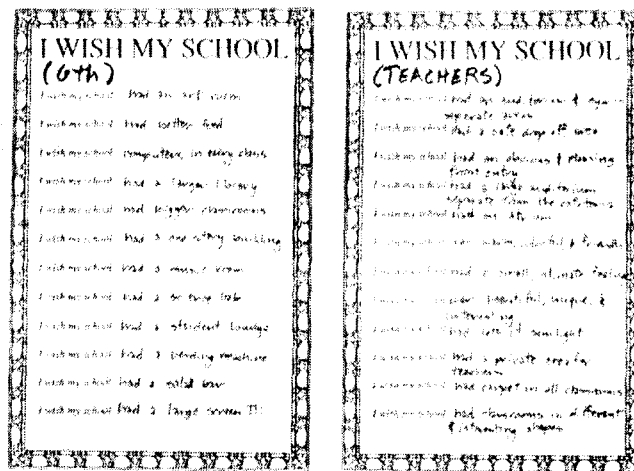 I WISH MY SCHOOL
(6th)
I wish my school had an art room
I wish my school had better food
I wish my school computers in every class
I wish my school had a larger library
I wish my school had bigger classrooms
I wish my school had a one story building
I wish my school had a music room
I wish my school had a science lab
I wish my school had a student lounge
I wish my school had a vending machine
I wish my school had a salad bar
I wish my school had a large screen TV
I WISH MY SCHOOL
(TEACHERS)
I wish my school had
separate
I wish my school had a safe drop off area
I wish my school had an obvious & pleasing
front entry
I wish my school had a auditorium
separate from the cafeteria
I wish my school had an
warm, colorful &
had a small, intimate feeling
beautiful, unique, &
interesting
had lots of sunlight
I wish my school had a private area for
teachers
I wish my school had carpet in all classrooms
I wish my school had classrooms in different
& interesting shapes